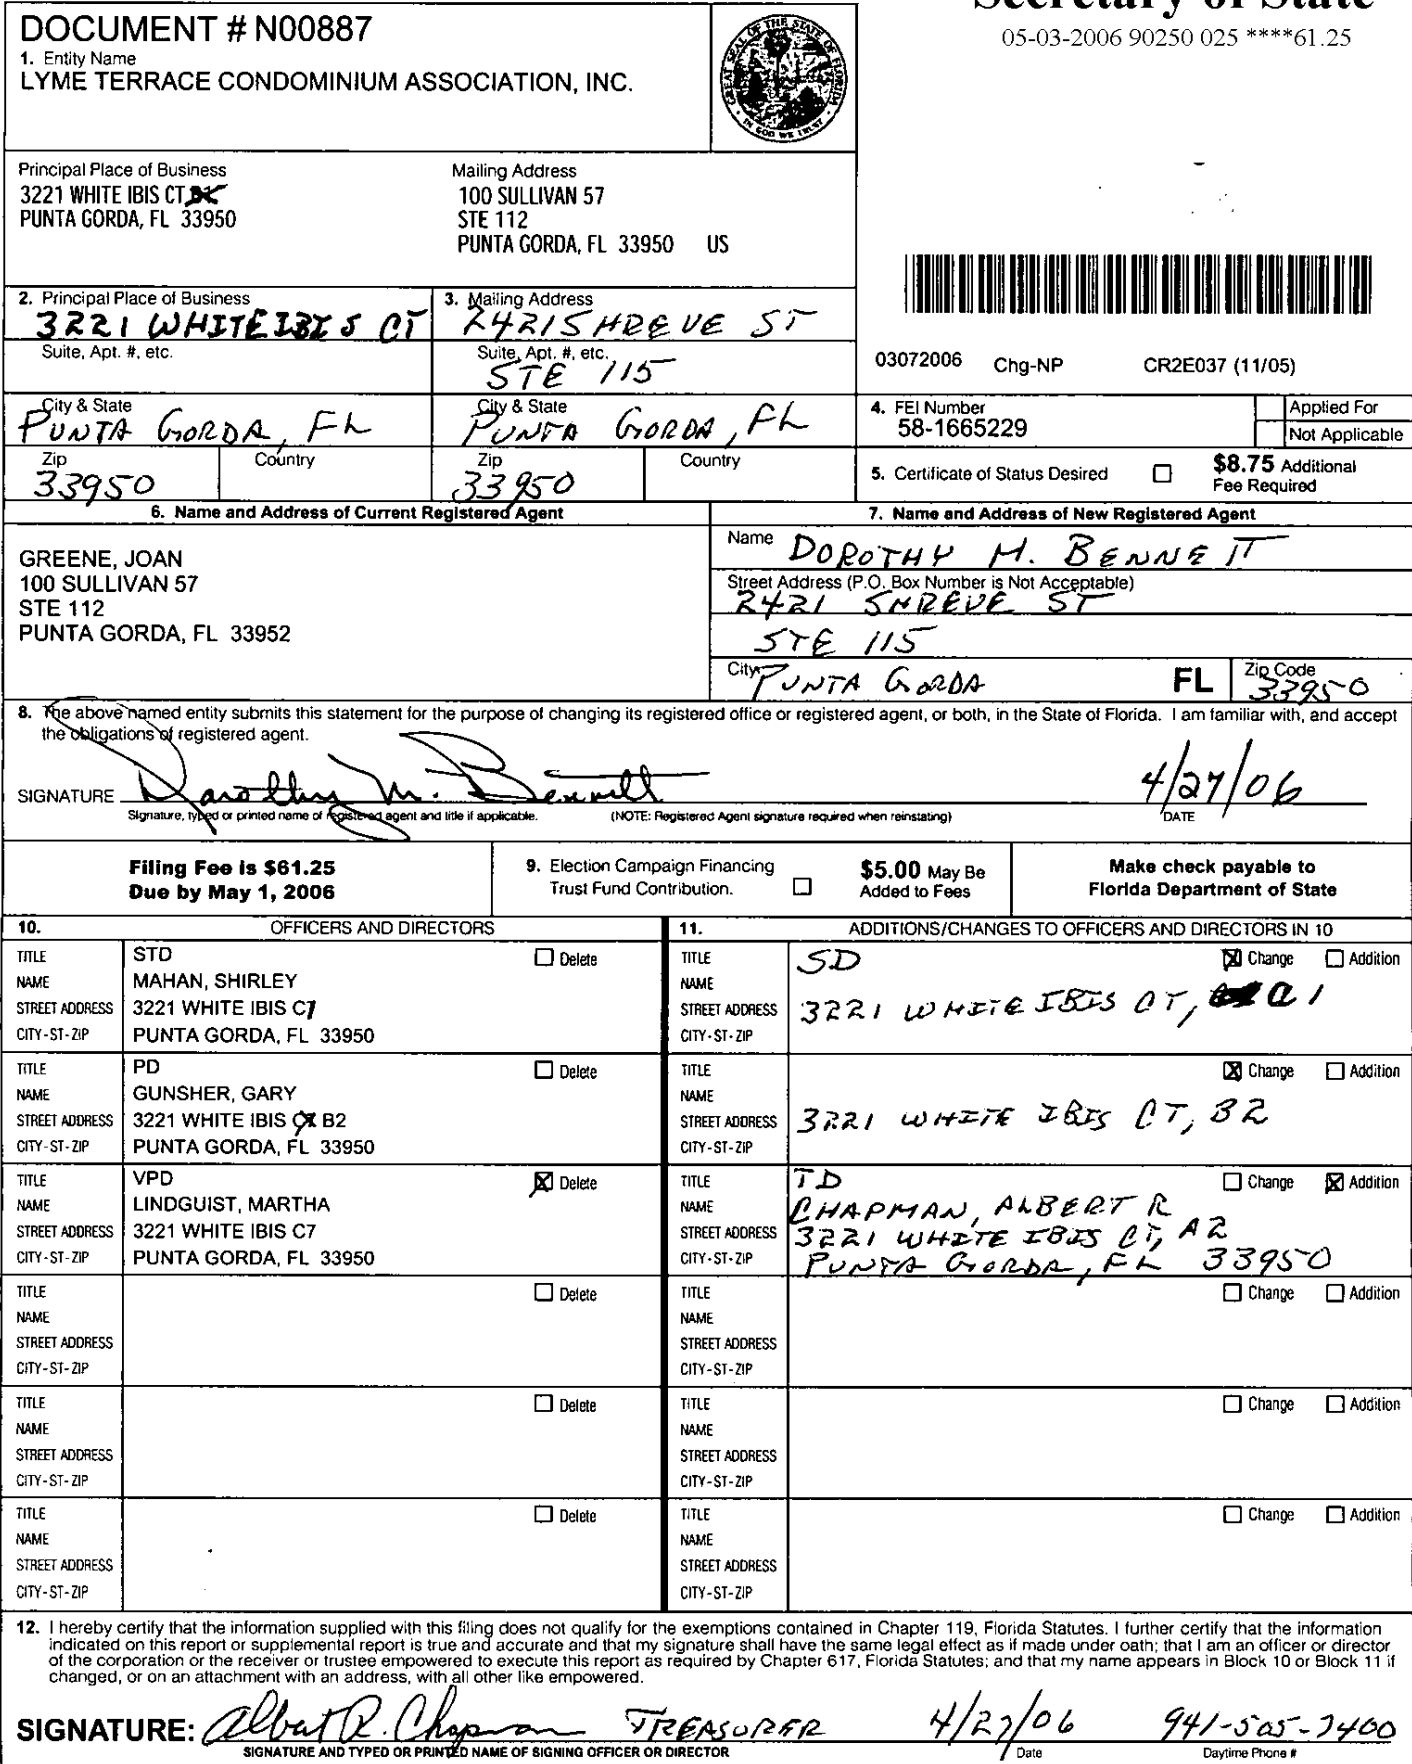 Secretary of State
05-03-2006 90250 025 ****61.25
DOCUMENT # N00887
1. Entity Name
LYME TERRACE CONDOMINIUM ASSOCIATION, INC.
GREAT SEAL OF THE STATE OF FLORIDA
IN GOD WE TRUST
Principal Place of Business
3221 WHITE IBIS CT
PUNTA GORDA, FL 33950
Mailing Address
100 SULLIVAN 57
STE 112
PUNTA GORDA, FL 33950 US
2. Principal Place of Business
3221 WHITE IBIS CT
Suite, Apt. #, etc.
City & State
PUNTA GORDA, FL
Zip
33950
Country
3. Mailing Address
2421 SHREVE ST
Suite, Apt. #, etc.
STE 115
City & State
PUNTA GORDA, FL
Zip
33950
Country
03072006 Chg-NP CR2E037 (11/05)
4. FEI Number
58-1665229
Applied For
Not Applicable
5. Certificate of Status Desired
$8.75 Additional
Fee Required
6. Name and Address of Current Registered Agent
GREENE, JOAN
100 SULLIVAN 57
STE 112
PUNTA GORDA, FL 33952
7. Name and Address of New Registered Agent
Name DOROTHY M. BENNETT
Street Address (P.O. Box Number is Not Acceptable)
2421 SHREVE ST
STE 115
City PUNTA GORDA FL Zip Code 33950
8. The above named entity submits this statement for the purpose of changing its registered office or registered agent, or both, in the State of Florida. I am familiar with, and accept
the obligations of registered agent.
SIGNATURE Dorothy M. Bennett 4/27/06
Signature, typed or printed name of registered agent and title if applicable. (NOTE: Registered Agent signature required when reinstating) DATE
Filing Fee is $61.25
Due by May 1, 2006
9. Election Campaign Financing
Trust Fund Contribution.
$5.00 May Be
Added to Fees
Make check payable to
Florida Department of State
10. OFFICERS AND DIRECTORS
11. ADDITIONS/CHANGES TO OFFICERS AND DIRECTORS IN 10
TITLE STD Delete
NAME MAHAN, SHIRLEY
STREET ADDRESS 3221 WHITE IBIS C7
CITY-ST-ZIP PUNTA GORDA, FL 33950
TITLE SD Change Addition
NAME
STREET ADDRESS 3221 WHITE IBIS CT, C1
CITY-ST-ZIP
TITLE PD Delete
NAME GUNSHER, GARY
STREET ADDRESS 3221 WHITE IBIS B2
CITY-ST-ZIP PUNTA GORDA, FL 33950
TITLE Change Addition
NAME
STREET ADDRESS 3221 WHITE IBIS CT, B2
CITY-ST-ZIP
TITLE VPD Delete
NAME LINDGUIST, MARTHA
STREET ADDRESS 3221 WHITE IBIS C7
CITY-ST-ZIP PUNTA GORDA, FL 33950
TITLE TD Change Addition
NAME CHAPMAN, ALBERT R
STREET ADDRESS 3221 WHITE IBIS CT, A2
CITY-ST-ZIP PUNTA GORDA, FL 33950
TITLE Delete
NAME
STREET ADDRESS
CITY-ST-ZIP
TITLE Change Addition
NAME
STREET ADDRESS
CITY-ST-ZIP
TITLE Delete
NAME
STREET ADDRESS
CITY-ST-ZIP
TITLE Change Addition
NAME
STREET ADDRESS
CITY-ST-ZIP
TITLE Delete
NAME
STREET ADDRESS
CITY-ST-ZIP
TITLE Change Addition
NAME
STREET ADDRESS
CITY-ST-ZIP
12. I hereby certify that the information supplied with this filing does not qualify for the exemptions contained in Chapter 119, Florida Statutes. I further certify that the information
indicated on this report or supplemental report is true and accurate and that my signature shall have the same legal effect as if made under oath; that I am an officer or director
of the corporation or the receiver or trustee empowered to execute this report as required by Chapter 617, Florida Statutes; and that my name appears in Block 10 or Block 11 if
changed, or on an attachment with an address, with all other like empowered.
SIGNATURE: Albert R. Chapman TREASURER 4/27/06 941-505-7400
SIGNATURE AND TYPED OR PRINTED NAME OF SIGNING OFFICER OR DIRECTOR Date Daytime Phone #